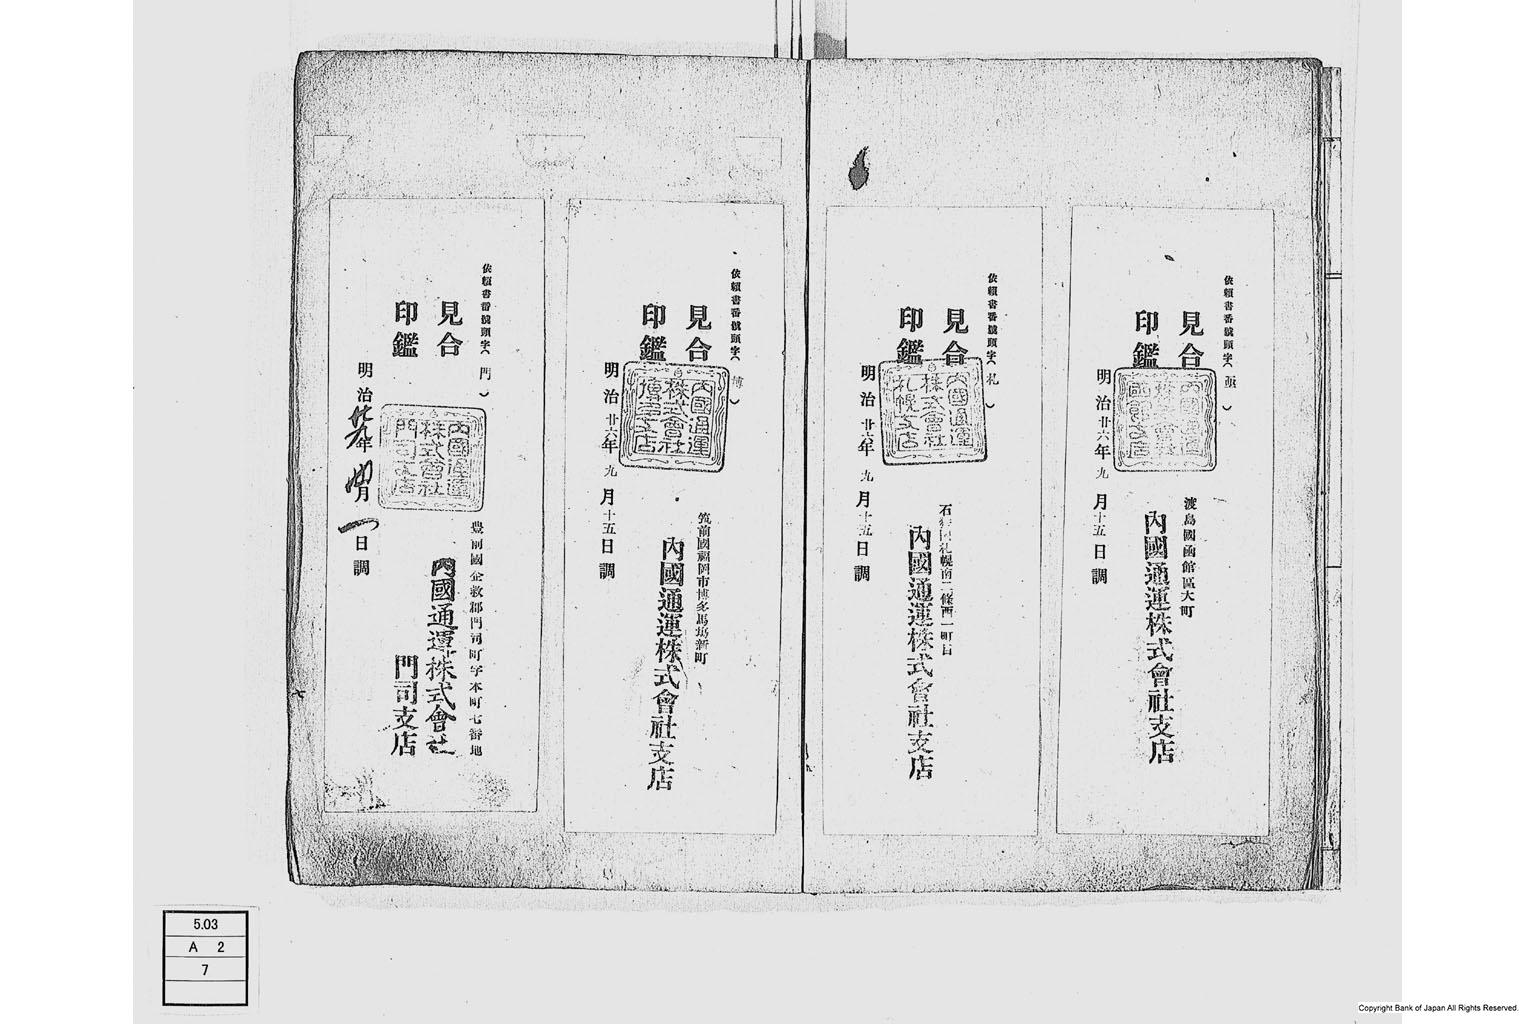 依頼書番號頭字（函）
見合
印鑑
內國通運
株式會社
函館支店
明治廿六年九月十五日調
渡島國函館區大町
內國通運株式會社支店
依頼書番號頭字（札）
見合
印鑑
內國通運
株式會社
札幌支店
明治廿六年九月十五日調
石狩國札幌南一條西一町目
內國通運株式會社支店
依頼書番號頭字（博）
見合
印鑑
內國通運
株式會社
博多支店
明治廿六年九月十五日調
筑前國福岡市博多馬場新町
內國通運株式會社支店
依頼書番號頭字（門）
見合
印鑑
內國通運
株式會社
門司支店
明治廿九年四月一日調
豊前國企救郡門司町字本町七番地
內國通運株式會社
門司支店
七
5.03
A 2
7
Copyright Bank of Japan All Rights Reserved.